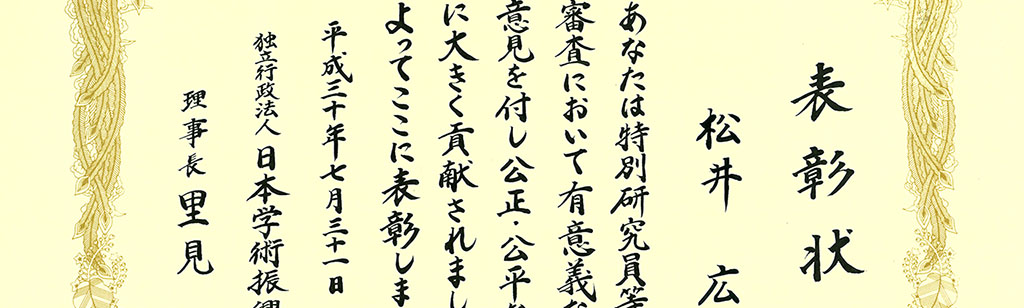 表彰状
松井 広
あなたは特別研究員等
審査において有意義な
意見を付し公正・公平
に大きく貢献されまし
よってここに表彰しま
平成三十年七月三十一日
独立行政法人日本学術振
理事長 里見